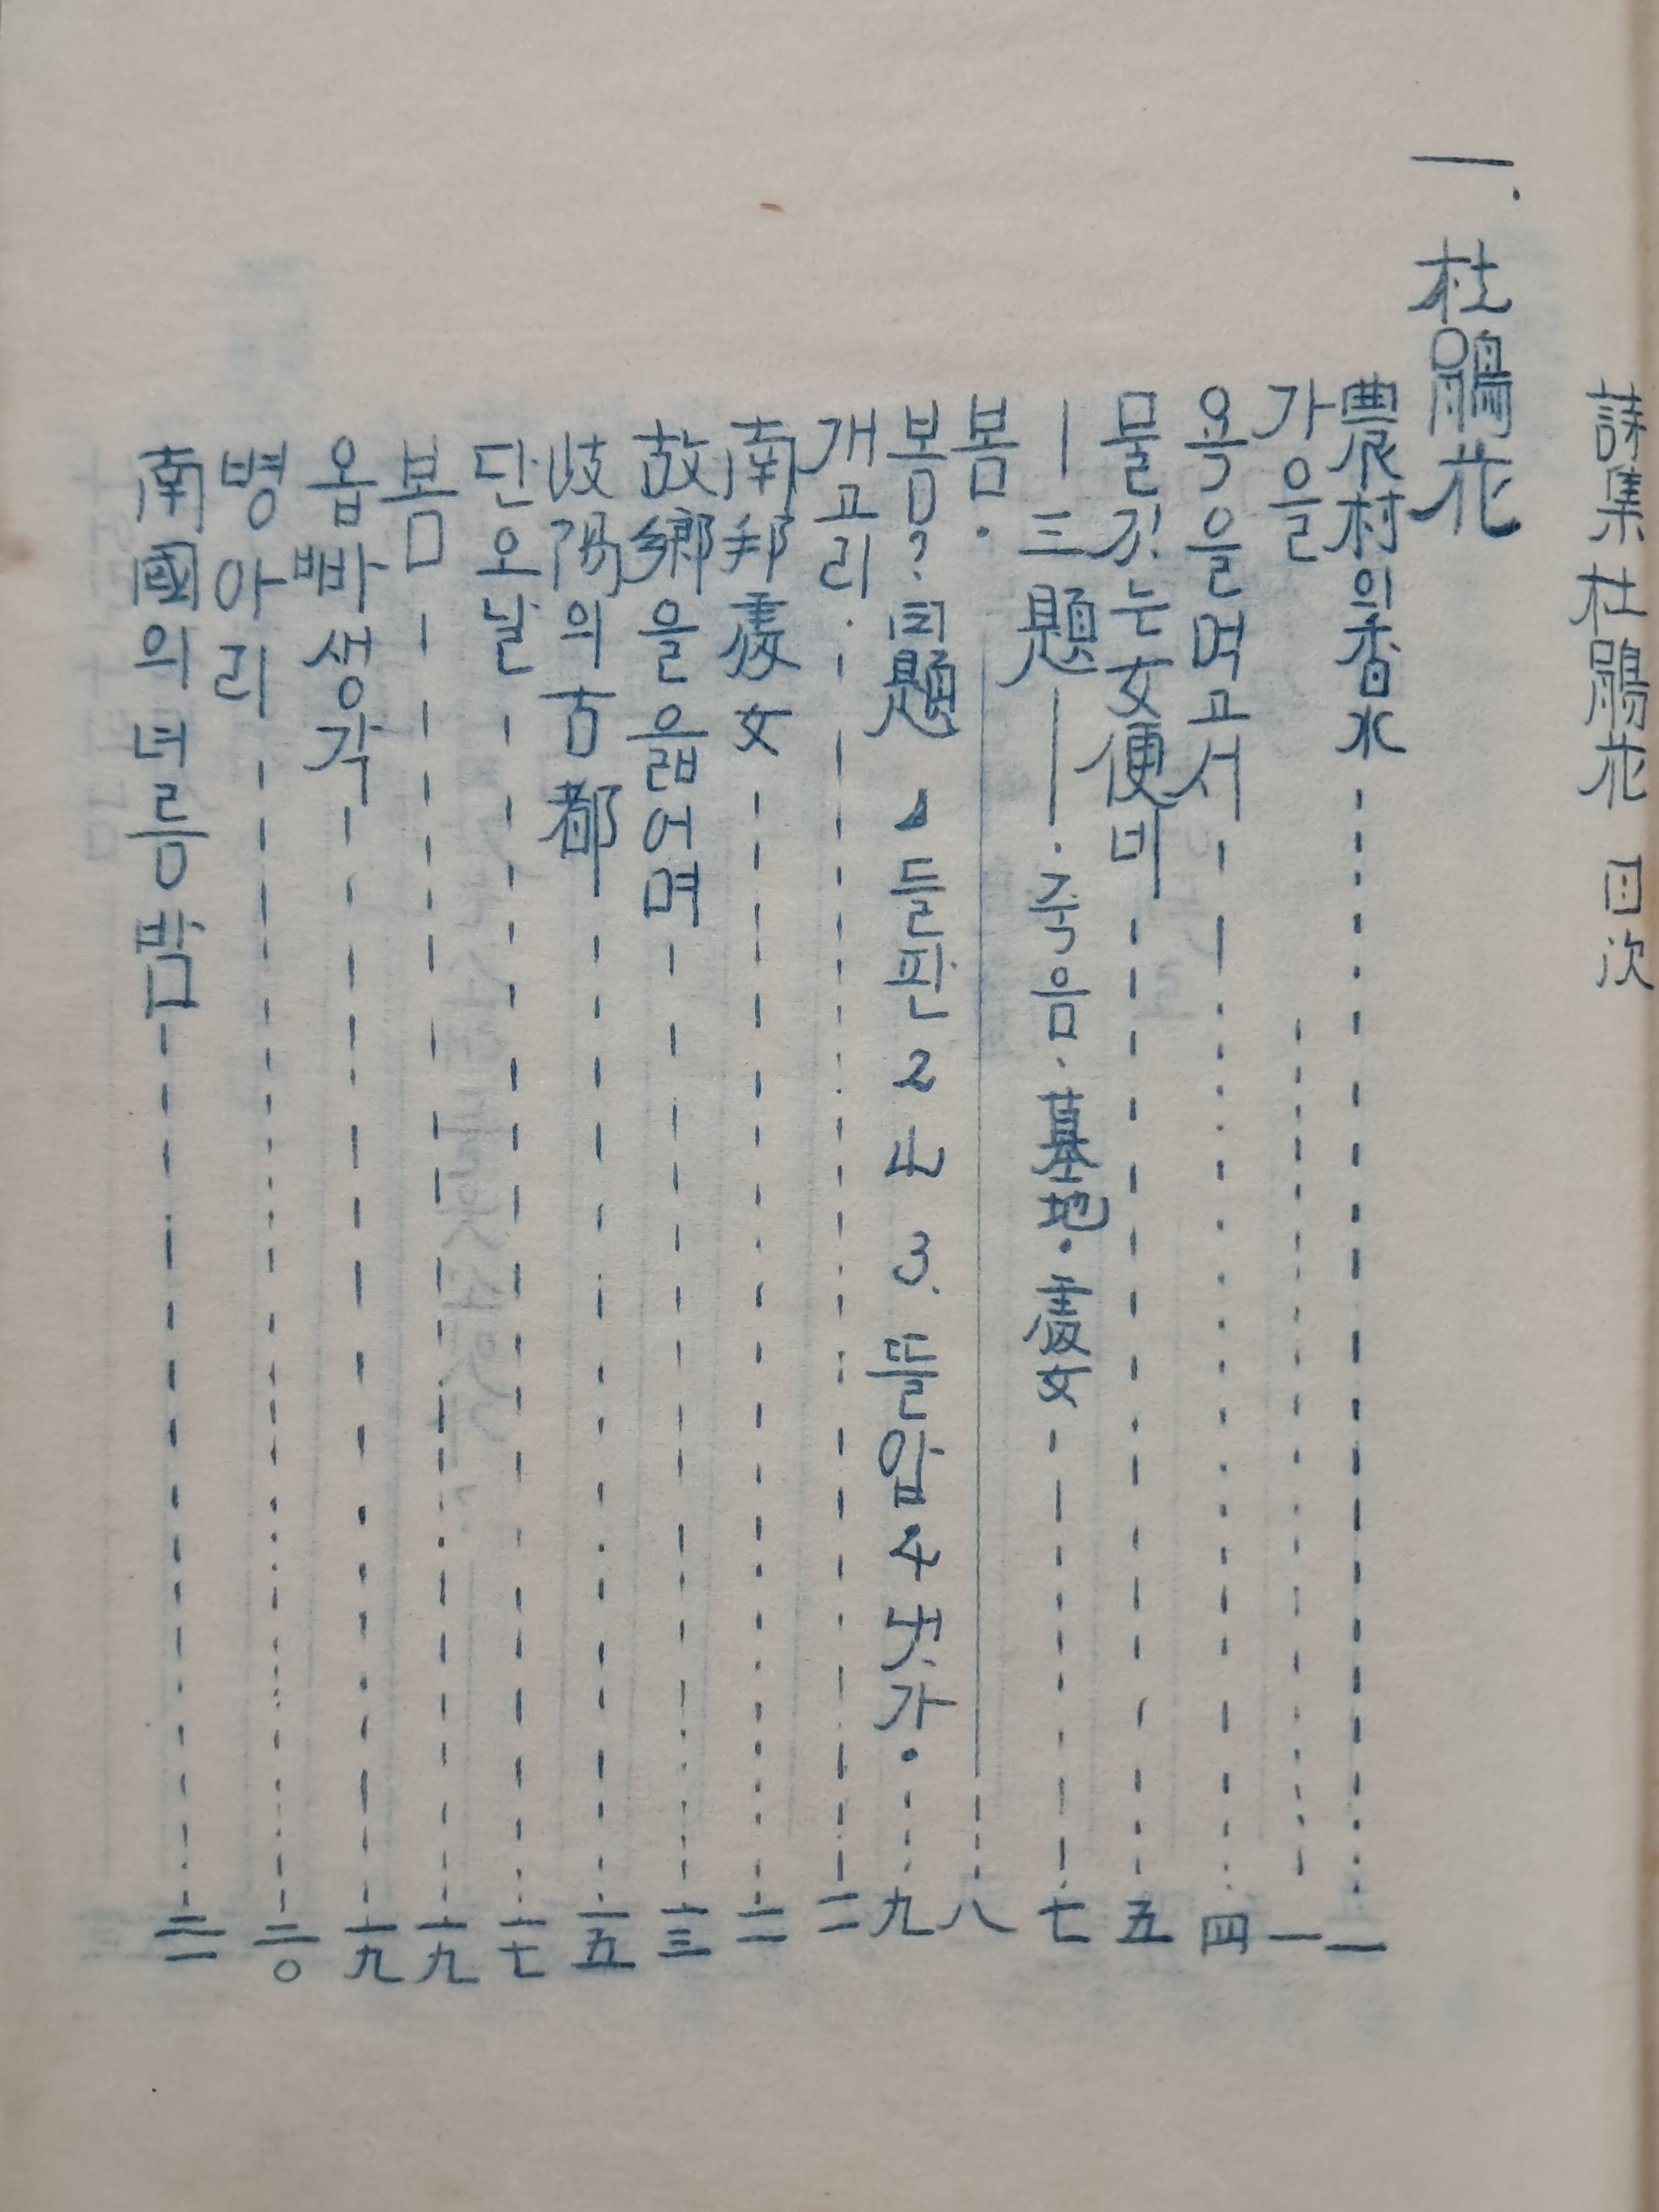 詩集 杜鵑花 目次
一. 杜鵑花
農村의 香水 一
가을 一
욕을 먹고서 四
물깃는 女便네 五
―三題― 죽음. 墓地. 處女 七
봄. 八
봄? 四題 1 들판 2 山 3. 뜰압 4 냇가. 九
개고리 一一
南邦處女 一二
故鄕을 읊어며 一三
歧陽의 古都 一五
단오날 一七
봄 一九
옵빠생각 一九
병아리 二〇
南國의 녀름밤 二一